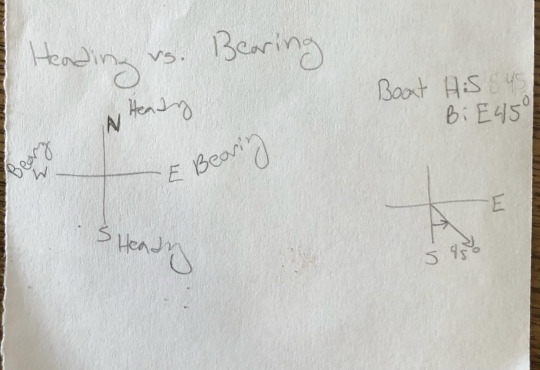 Heading vs. Bearing
N Heading
Bearing
W
E Bearing
S Heading
Boat H: S 845
B: E 45°
E
S 45°